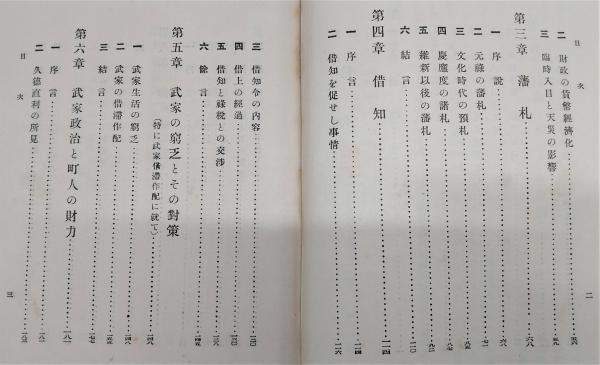 目次
二 財政の貨幣經濟化……五六
三 臨時入目と天災の影響……五九
第三章 藩札……六八
一 序說……六八
二 元祿の藩札……七一
三 文化時代の預札……七八
四 慶應度の諸札……八七
五 維新以後の藩札……九二
六 結言……一一〇
第四章 借知……一一四
一 序言……一一四
二 借知を促せし事情……一一六
二
三 借知令の內容……一二〇
四 借上の經過……一三〇
五 借知と祿稅との交涉
六 餘言……一四五
第五章 武家の窮乏とその對策
(特に武家借滯作配に就て)……一四八
一 武家生活の窮乏……一四八
二 武家の借滯作配
三 結言
第六章 武家政治と町人の財力……一八一
一 序言……一八一
二 久德直利の所見
目次
三